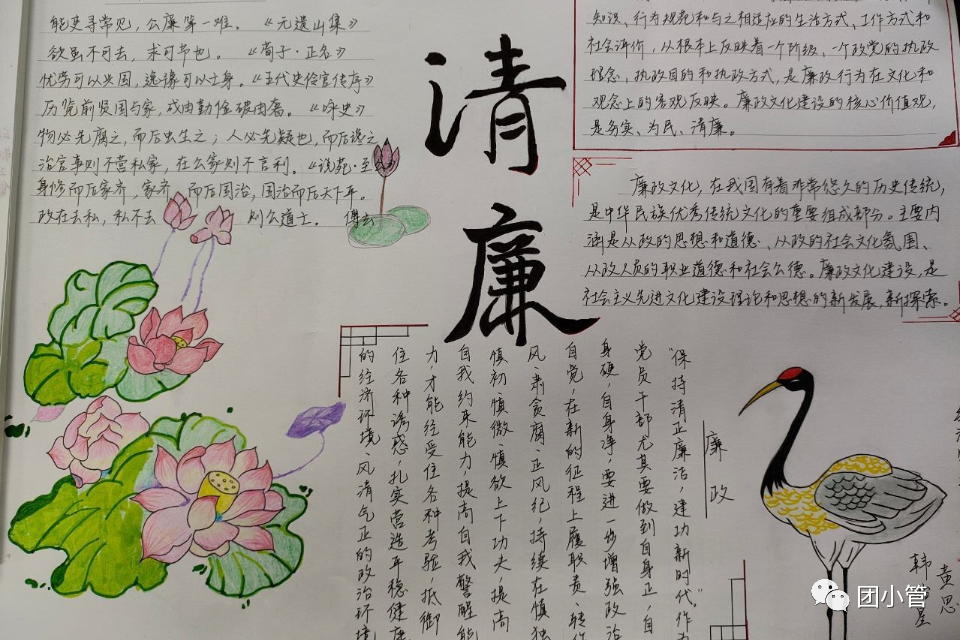 能吏寻常见,公廉第一难。《元遗山集》
欲虽不可去,求可节也。《荀子·正名》
忧劳可以兴国,逸豫可以亡身。《五代史伶官传序》
历览前贤国与家,成由勤俭破由奢。《咏史》
物必先腐之,而后虫生之;人必先疑也,而后谗之
治官事则不营私家,在公家则不言利。《说苑·至公》
身修而后家齐,家齐而后国治,国治而后天下平。
政在去私,私不去 则公道亡。傅玄
清
廉
知识、行为规范和与之相适应的生活方式、工作方式和
社会评价,从根本上反映着一个阶级、一个政党的执政
理念、执政目的和执政方式,是廉政行为在文化和
观念上的客观反映。廉政文化建设的核心价值观,
是务实、为民、清廉。
廉政文化,在我国有着非常悠久的历史传统,
是中华民族优秀传统文化的重要组成部分。主要内
涵是从政的思想和道德、从政的社会文化氛围、
从政人员的职业道德和社会公德。廉政文化建设,是
社会主义先进文化建设理论和思想的新发展、新探索。
廉政
“保持清正廉洁,建功新时代”作为
党员干部尤其要做到自身正,自
身硬,自身净,要进一步增强政治
自觉,在新的征程上履职责、转作
风、肃贪腐、正风纪,持续在慎独
慎初、慎微、慎欲上下功夫,提高
自我约束能力提高自我警醒能
力,才能经受住各种考验,抵御
住各种诱惑,扎实营造平稳健康
的经济环境、风清气正的政治环境
黄思
韩星
团小管